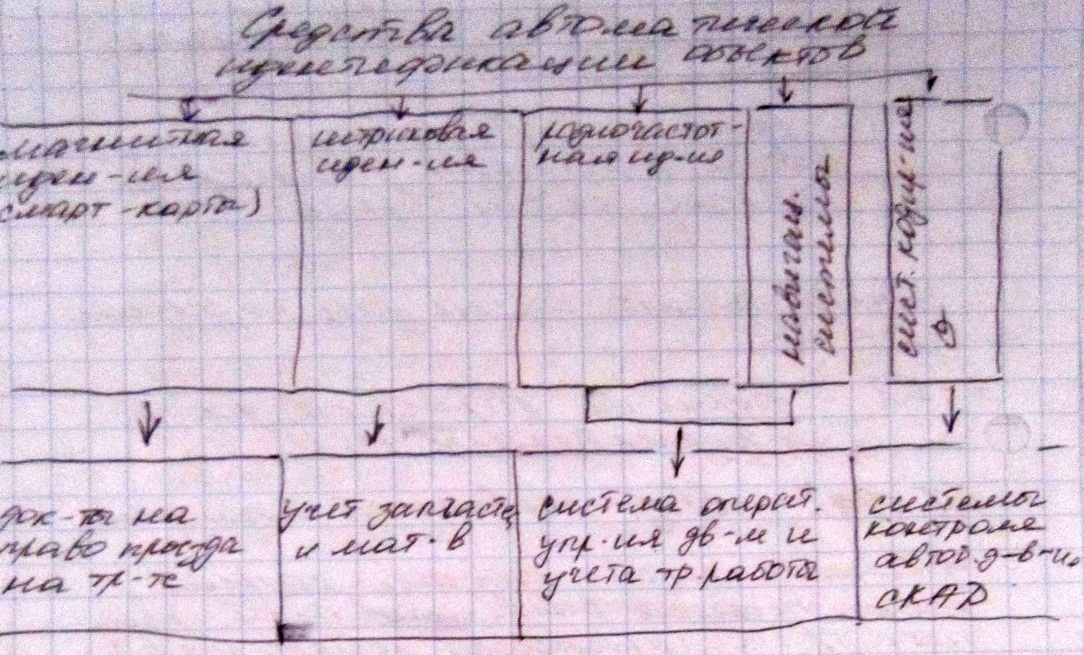 Средства автоматической
идентификации объектов
магнитная
иден-ия
смарт-карты)
штриховая
иден-ия
радиочастот-
ная ид-ия
навигац.
системы
сист. кодир-ия
док-ты на
право проезда
на тр-те
учет запчасте
и мат-в
система операт.
упр-ия дв-м и
учета тр. работы
системы
контроля
автоб. д-в-и.
СКАД